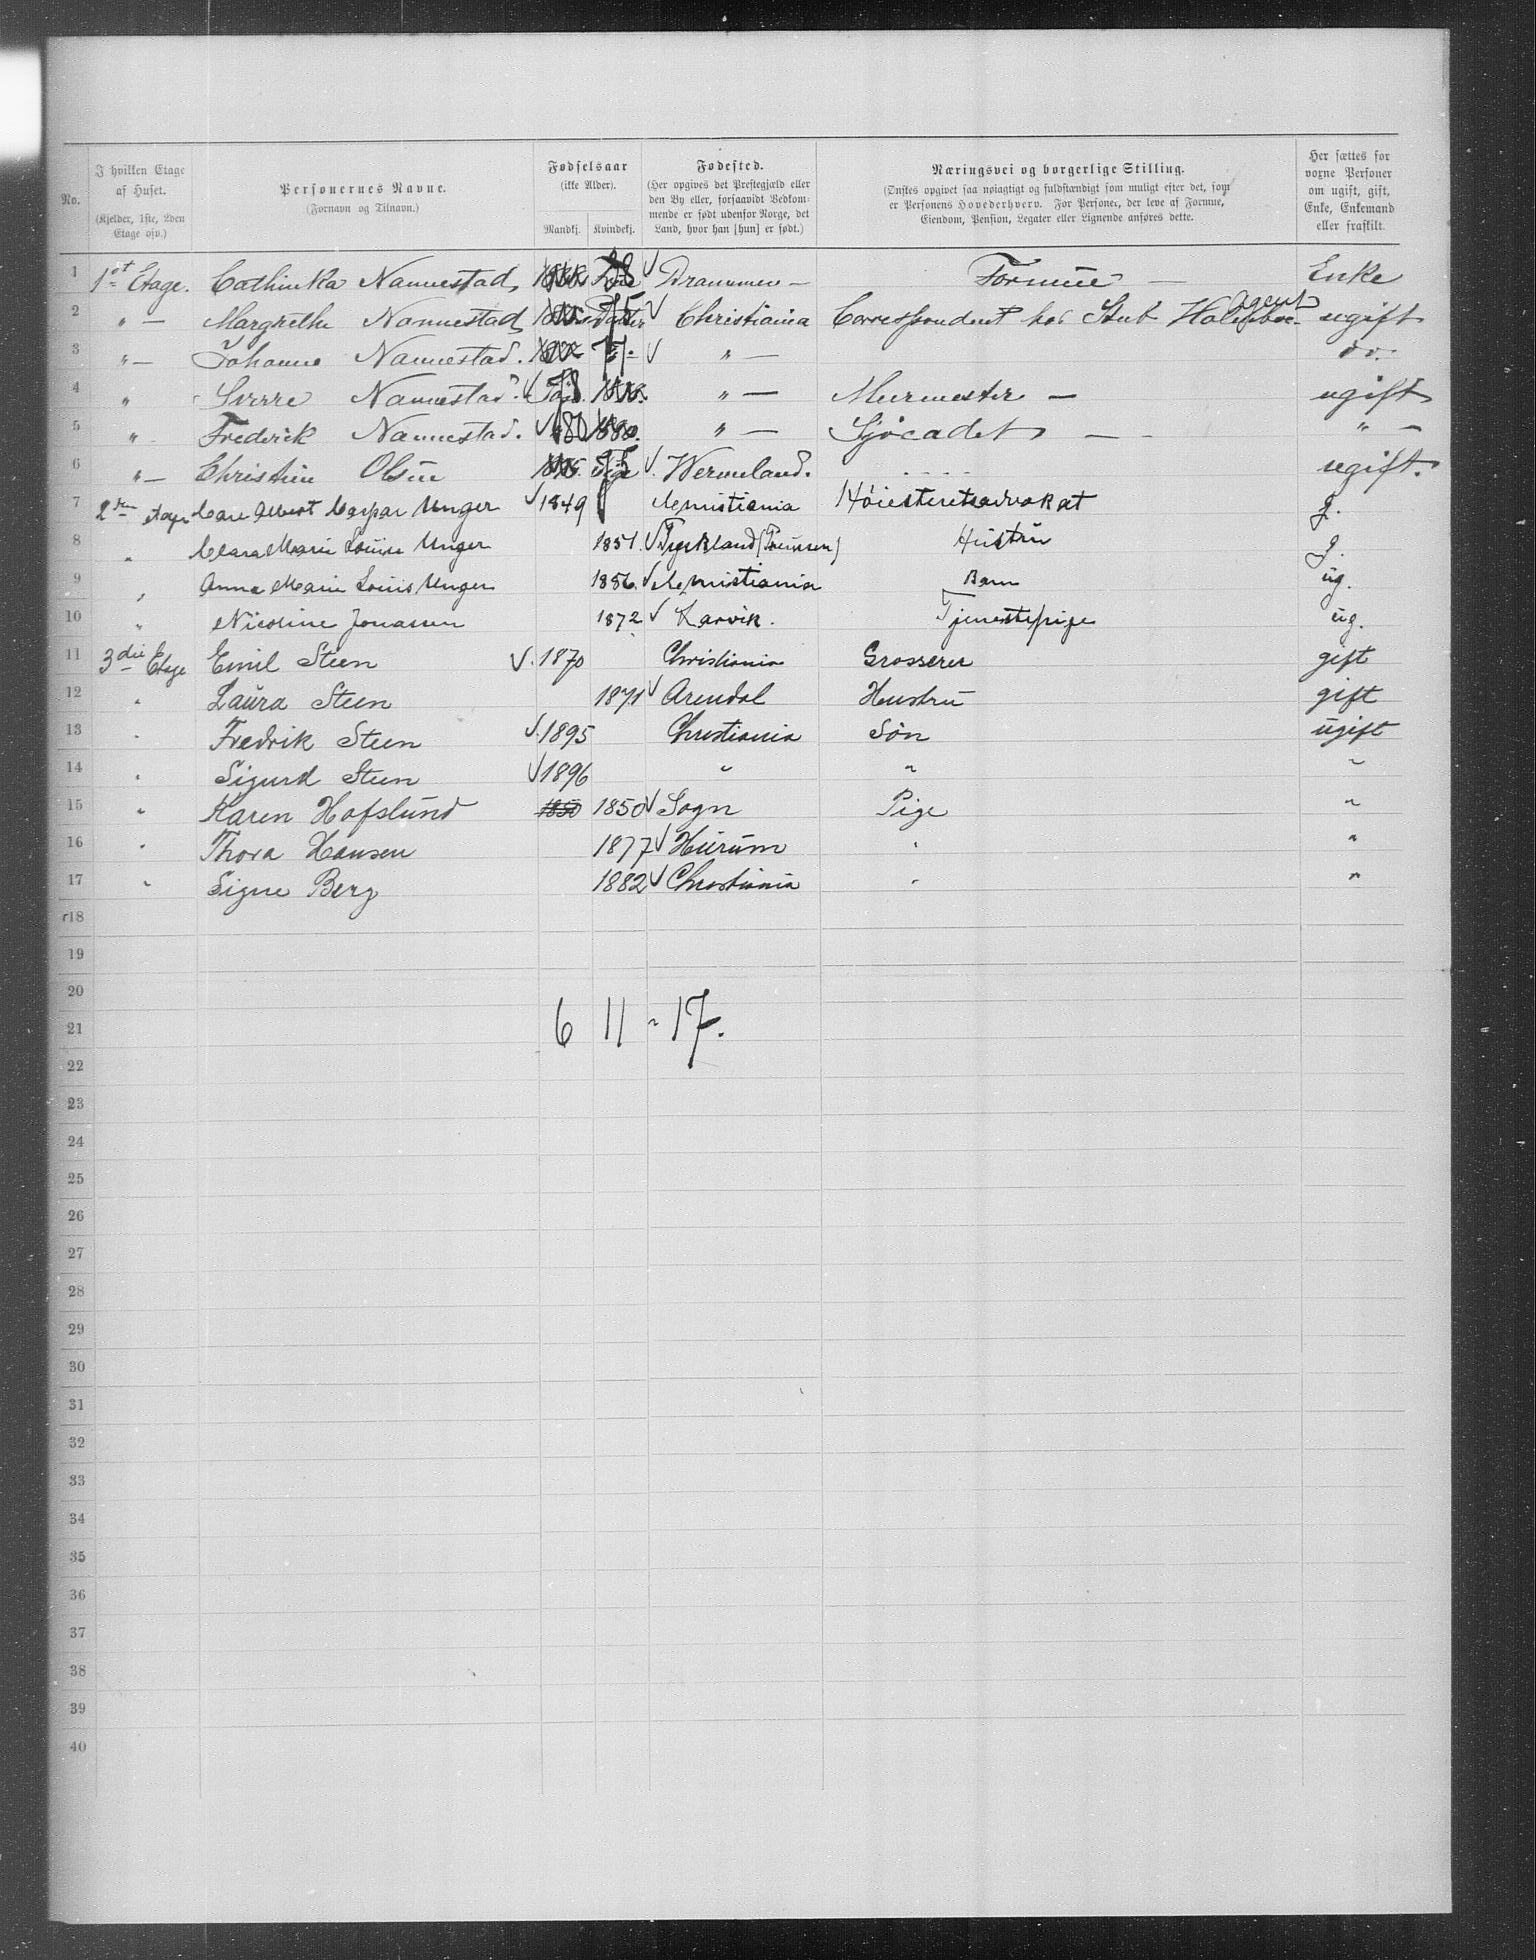 No.
I hvilken Etage af Huset. (Kjelder, 1ste, 2den Etage osv.)
Personernes Navne. (Fornavn og Tilnavn.)
Fødselsaar (ikke Alder). Mandkj. Kvindekj.
Fødested. (Her opgives det Prestegjæld eller den By eller, forsaavidt Vedkommende er født udenfor Norge, det Land, hvor han [hun] er født.)
Næringsvei og borgerlige Stilling. (Ønskes opgivet saa nøiagtigt og fuldstændigt som muligt efter det, som er Personens Hovederhverv. For Personer, der leve af Formue, Eiendom, Pension, Legater eller Lignende anføres dette.)
Her sættes for voxne Personer om ugift, gift, Enke, Enkemand eller fraskilt.
1 1st Etage. Cathinka Nannestad, 38 Drammen — Formue — Enke
2 " — Margrethe Nannestad 75 Christiania Correspondent hos Agent ugift
3 " — Johanne Nannestad. 77 " — do.
4 " Sverre Nannestad. 78 " — Murmester — ugift
5 " Frederik Nannestad. 80 " — Sjøcadet — " —
6 " — Christine Olsen 75 Wermeland. ugift.
7 2den Etage Carl Albert Caspar Unger 1849 Christiania Høiesteretsadvokat g.
8 " Clara Marie Louise Unger 1851. Tyskland (Preussen) Hustru g.
9 " Anna Marie Louis Unger 1886. Christiania Barn ug.
10 " Nicoline Jonassen 1872 Larvik. Tjenestepige ug.
11 3die Etage Emil Steen 1870 Christiania Grosserer gift
12 " Laura Steen 1871 Arendal Hustru gift
13 " Fredrik Steen 1895 Christiania Søn ugift
14 " Sigurd Steen 1896 " " "
15 " Karen Hofslund 1850 1850 Sogn Pige "
16 " Thora Hansen 1877 Hurum " "
17 " Signe Berg 1882 Christiania " "
18
19
20
21 6 11 - 17.
22
23
24
25
26
27
28
29
30
31
32
33
34
35
36
37
38
39
40